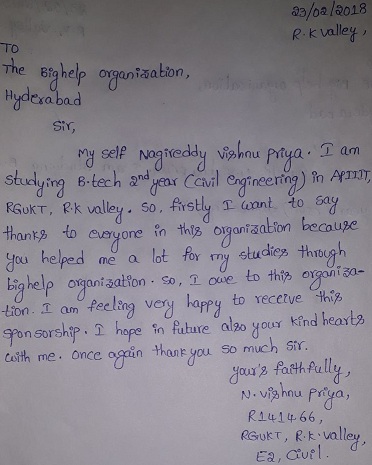 23/02/2018
R.K valley,
TO
The Bighelp organization,
Hyderabad
Sir,
My self Nagireddy vishnu priya. I am
studying B.tech 2nd year (civil engineering) in APIIIT,
RGUKT, R.K valley. So, firstly I want to say
thanks to everyone in this organization because
you helped me a lot for my studies through
bighelp organization. So, I owe to this organiza-
tion. I am feeling very happy to receive this
sponsorship. I hope in future also your kind hearts
with me. once again thank you so much sir.
your's faithfully,
N. vishnu priya,
R141466,
RGUKT, R.K. valley,
E2, Civil.